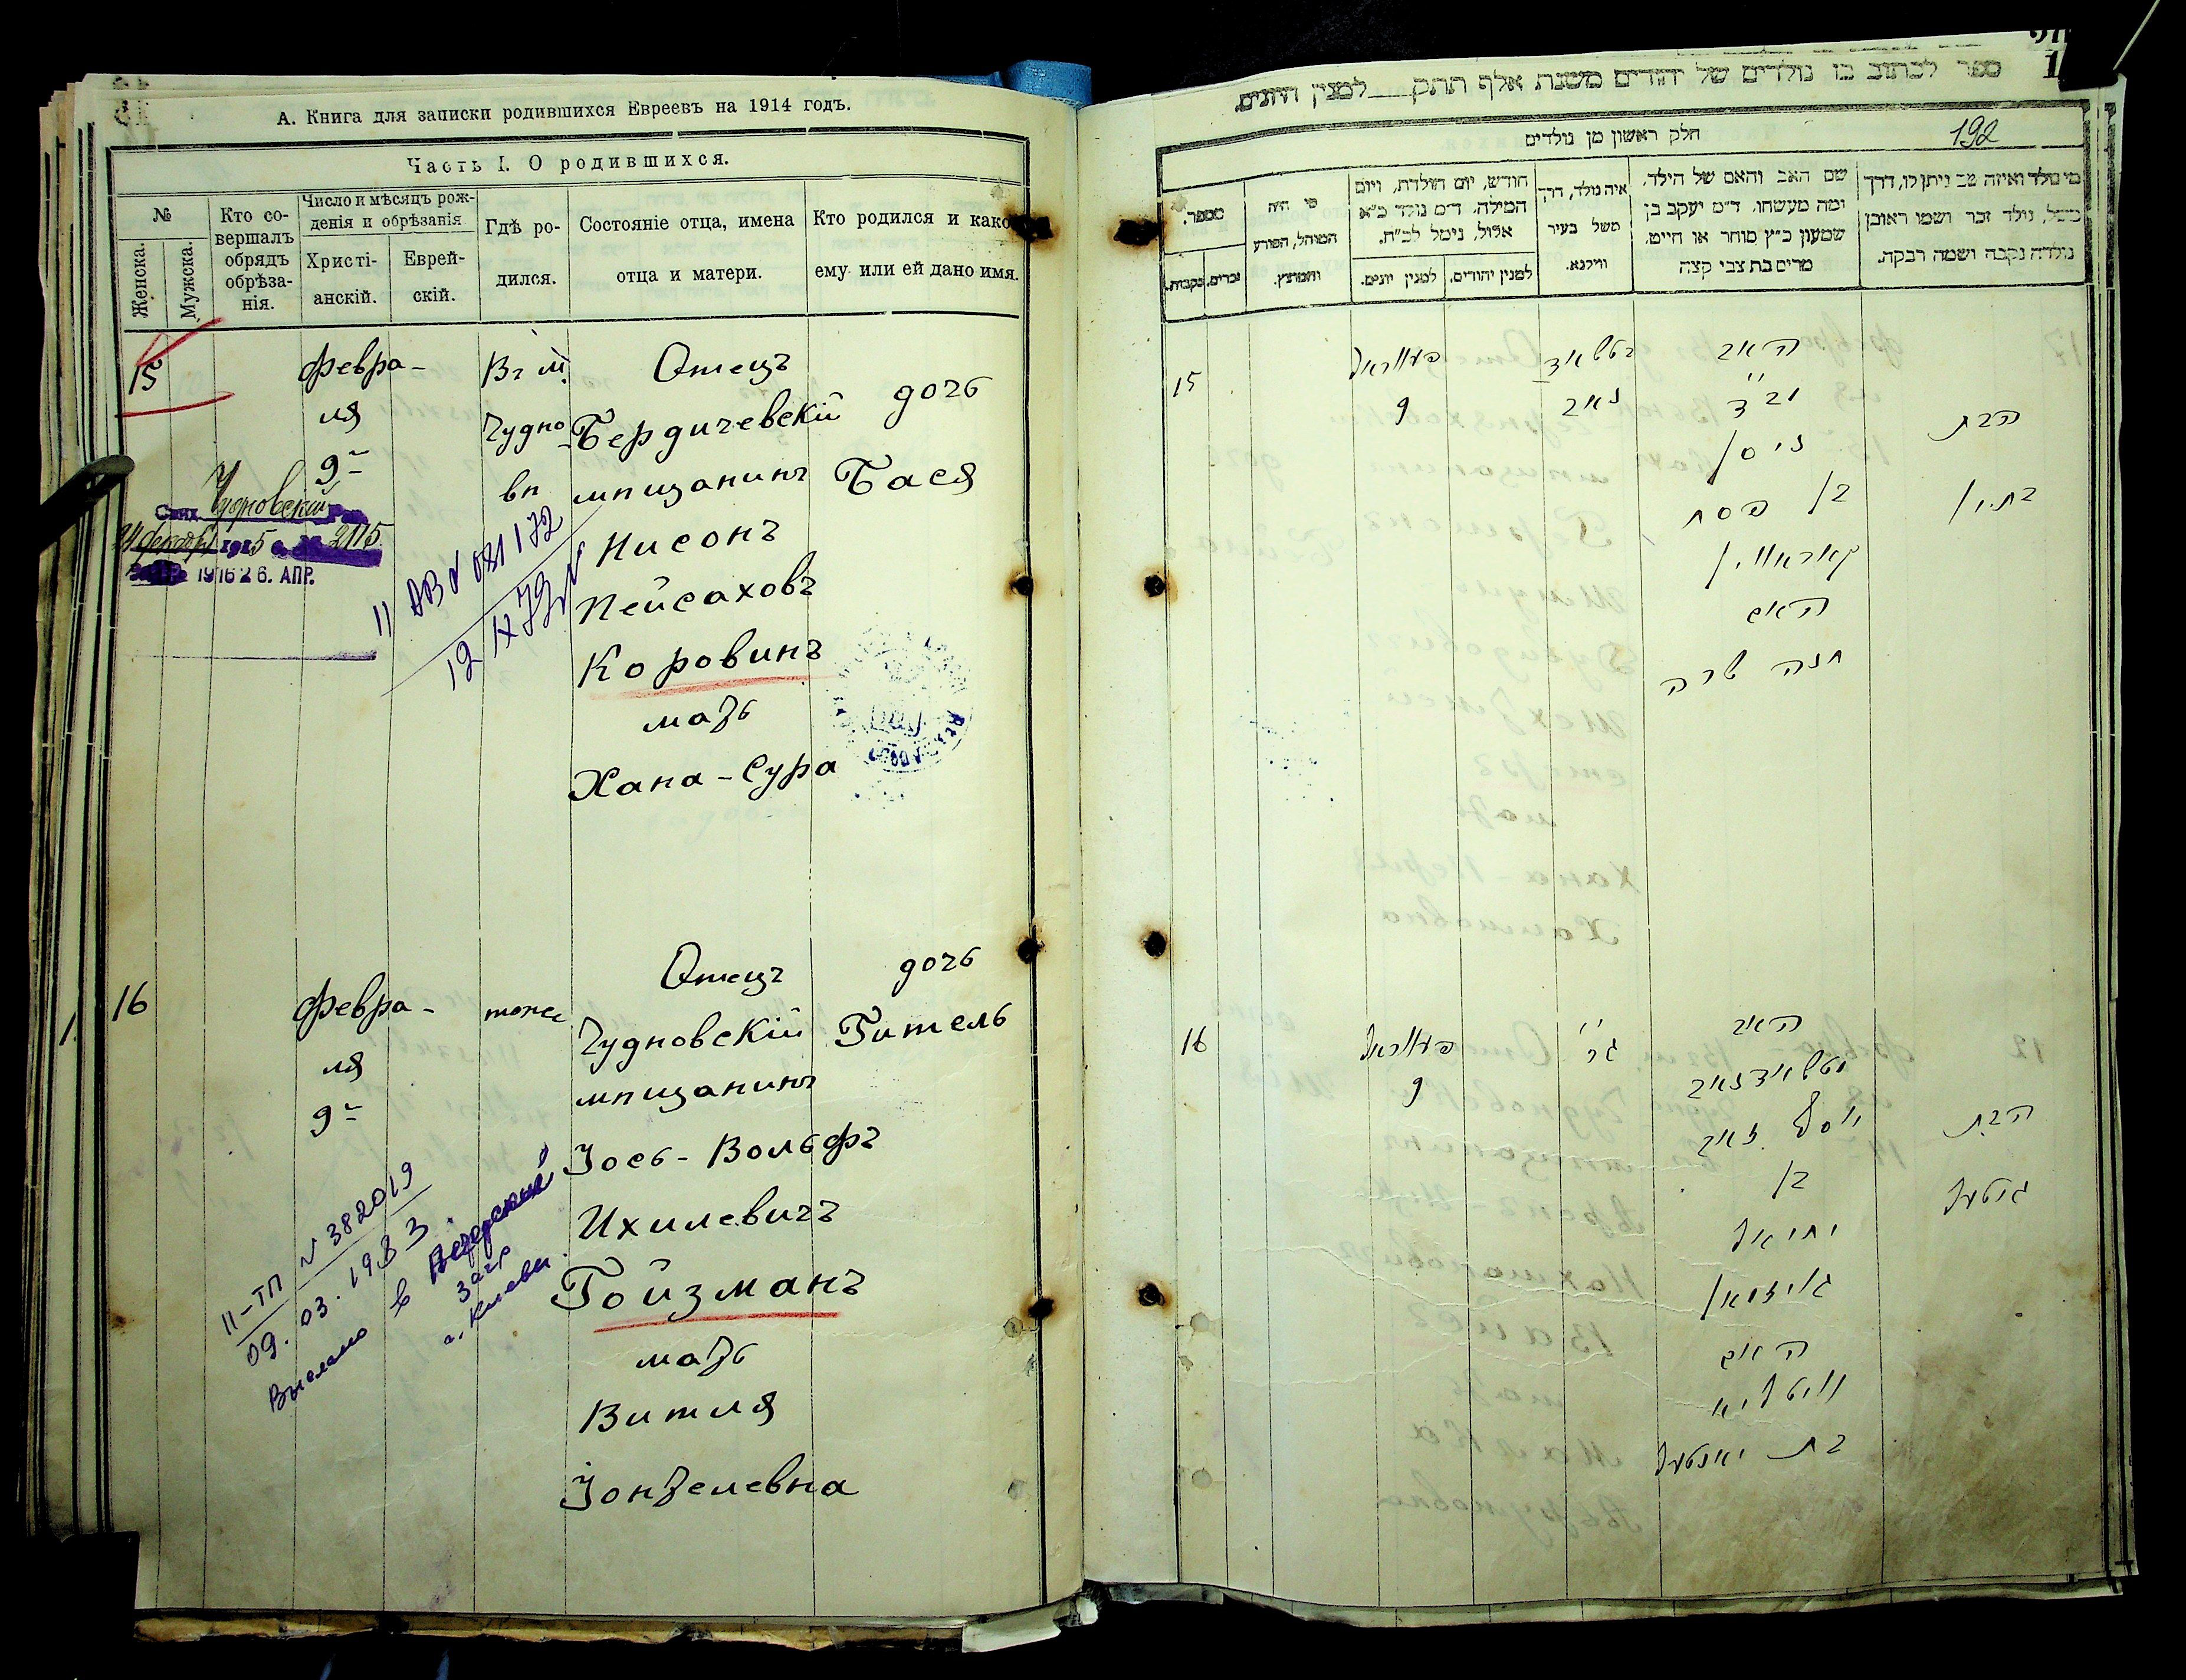 А. Книга для записки родившихся Евреевъ на 1914 годъ.
Часть I. О родившихся.
№
Женска.
Мужска.
Кто со-
вершалъ
обрядъ
обрѣза-
нія.
Число и мѣсяцъ рож-
денія и обрѣзанія
Христі-
анскій.
Еврей-
скій.
Гдѣ ро-
дился.
Состояніе отца, имена
отца и матери.
Кто родился и како
ему или ей дано имя.
15
Февра-
ля
9
Въ м.
Чудно-
вѣ
Отецъ
Бердичевскій
мѣщанинъ
Нисонъ
Пейсаховъ
Коровинъ
мать
Хана-Сура
дочь
Бася
Чудновскій
1915 г. № 2115
1916 26. АПР.
II АВ № 081172
12 IX 79
16
Февра-
ля
9
тоже
Отецъ
Чудновскій
мѣщанинъ
Іось-Вольфъ
Ихилевичъ
Гойзманъ
мать
Витля
Іонтелевна
дочь
Гитель
II-ТП № 382019
09.03.1983
Выслано в
загс
г. Киева
ספר לכתוב בו נולדים של יהודים משנת אלף תתק למנין היונים.
חלק ראשון מן נולדים
192
מספר.
נקבות.
זכרים.
מי היה
המוהל, הפורע
והמוצץ.
חודש, יום הולדת, ויום
המילה. ד״מ נולד כ״א
אלול, נימל לכ״ח.
למנין יונים.
למנין יהודים.
איה נולד, דרך
משל בעיר
ווילנא.
שם האב והאם של הילד,
ומה מעשהו. ד״מ יעקב בן
שמעון כ״ץ סוחר או חייט,
מרים בת צבי קצה
מי נולד ואיזה שם ניתן לו, דרך
משל, נולד זכר ושמו ראובן
נולדה נקבה ושמה רבקה.
15
פעווראל
9
האב
ניסן
בן פסח
קאראווין
האם
חנה שרה
הבת
16
פעווראל
9
האב
יוסף זאב
בן
יחיאל
גויזמאן
האם
וויטליא
בת יאנטעל
הבת
גיטעל